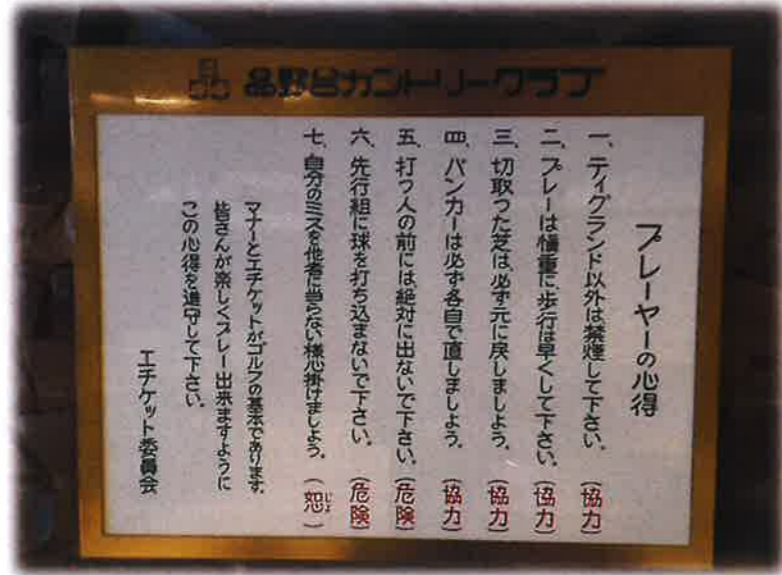 品野台カントリークラブ
プレーヤーの心得
一、ティグランド以外は禁煙して下さい。(協力)
二、プレーは慎重に歩行は早くして下さい。(協力)
三、切取った芝は、必ず元に戻しましょう。(協力)
四、バンカーは必ず各自で直しましょう。(協力)
五、打つ人の前には絶対に出ないで下さい。(危険)
六、先行組に球を打ち込まないで下さい。(危険)
七、自分のミスを他者に当らない様心掛けましょう。(恕じょ)
マナーとエチケットがゴルフの基本であります。
皆さんが楽しくプレー出来ますように
この心得を遵守して下さい。
エチケット委員会